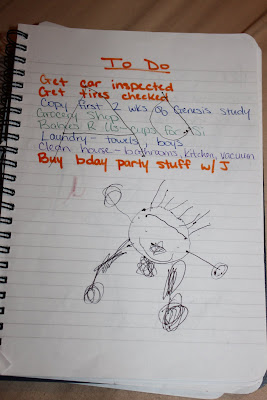 To Do
Get car inspected
Get tires checked
Copy first 2 wks of Genesis study
Grocery Shop
Babies R Us - cups for Si
Laundry - towels, boys
Clean house - bathrooms, kitchen, vacuum
Buy bday party stuff w/ J